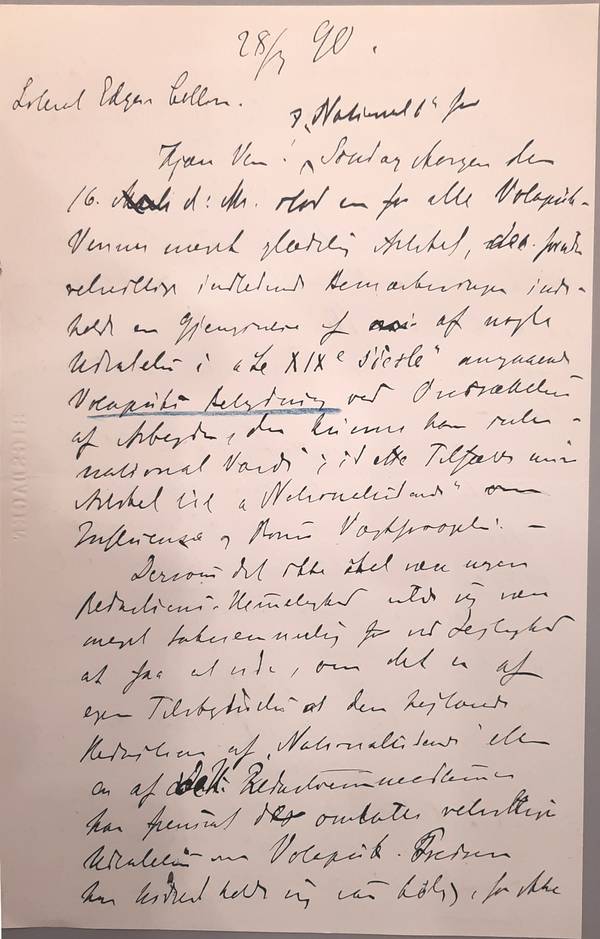 28/3 90.
Edgar Collin.
i "National" for
Kjære Ven! Søndag Morgen den
16. d: M. stod en for alle Volapük-
Venner meget glædelig Artikel, der foruden
velvillige indledende Bemærkninger inde-
holdt en Gjengivelse af af nogle
Udtalelser i "Le XIXe Siècle" angaaende
Volapüks Betydning ved Oversættelsen
af Arbejder, der kunne have inter-
national Værdi; i dette Tilfælde min
Artikel i "Nationaltidende" om
Influenza og Vægtfylde. —
Dersom det ikke skal være nogen
Redactions-Hemmelighed vilde jeg være
meget taknemmelig for ved Lejlighed
at faa at vide, om det er af
egen Tilskyndelse at den
Redaktion af "Nationaltidende" eller
en af dets Redactionsmedlemmer
har fremsat de omtalte velvillige
Udtalelser om Volapük.
har holdt mig, for ikke